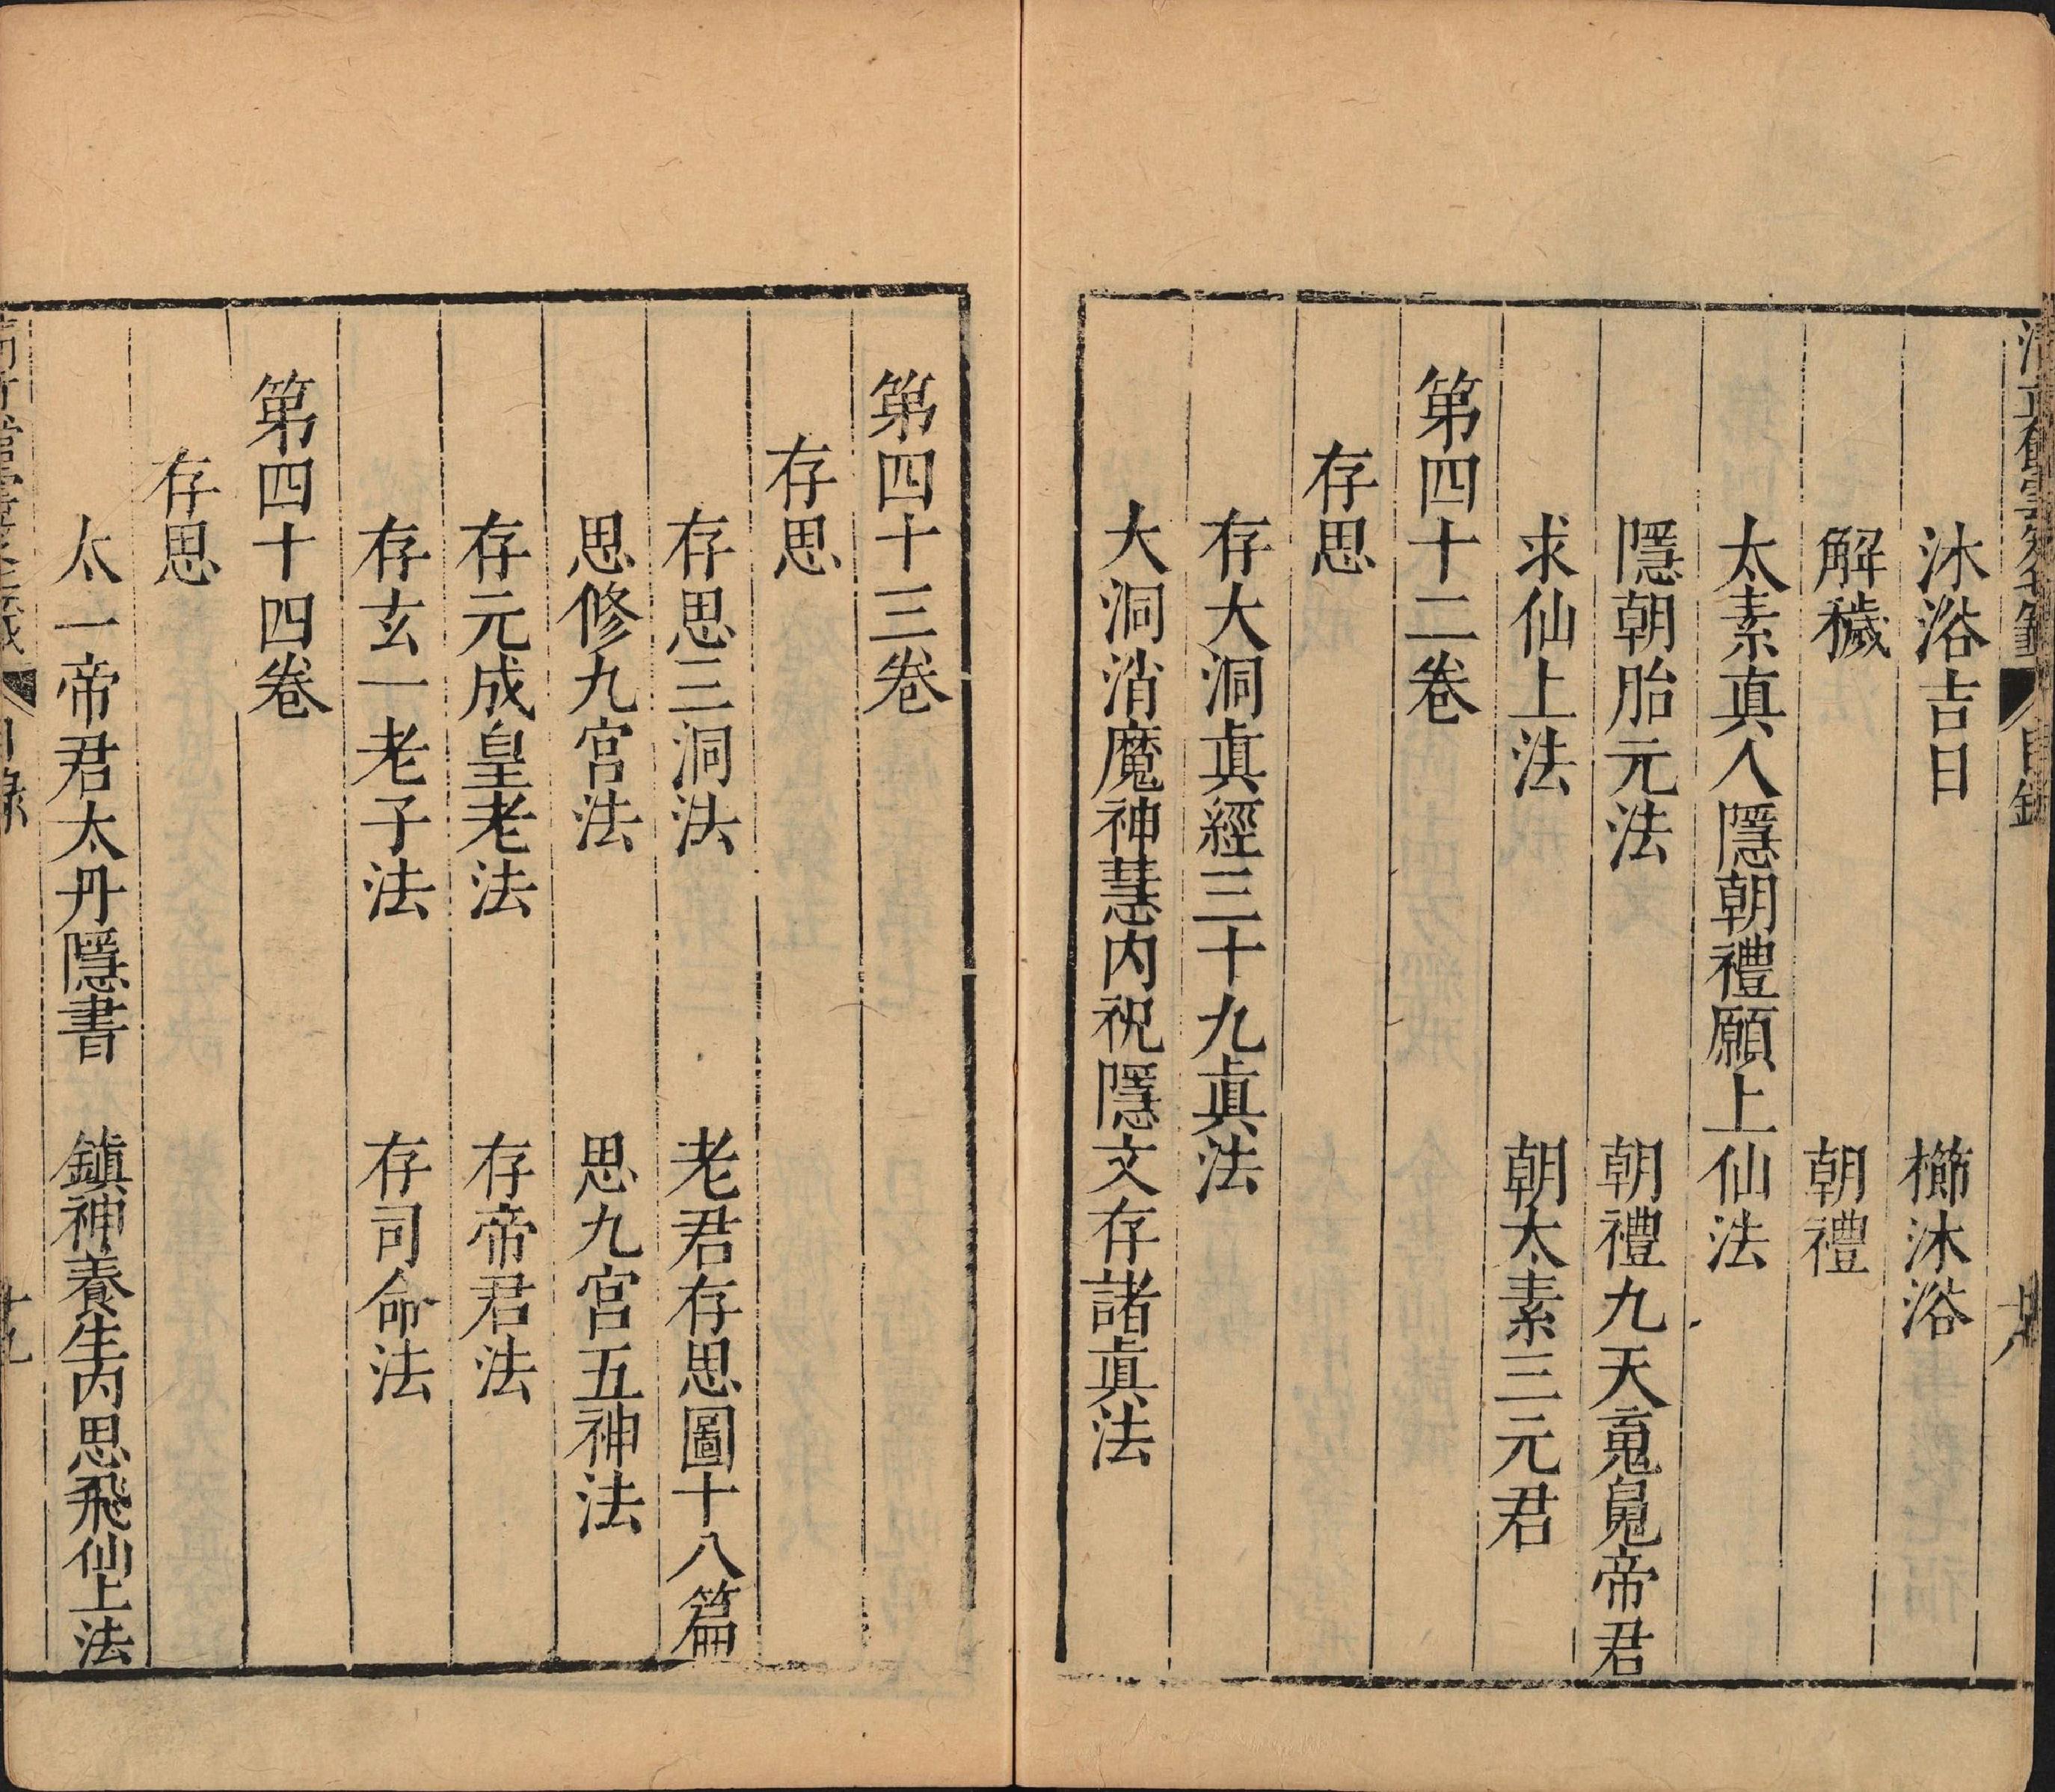 沐浴吉日　櫛沐浴
解穢　朝禮
太素真人隱朝禮願上仙法
隱朝胎元法　朝禮九天䰟鬼帝君
求仙上法　朝太素三元君
第四十二卷
存思
存大洞眞經三十九眞法
大洞消魔神慧内祝隱文存諸眞法
第四十三卷
存思
存思三洞法　老君存思圖十八篇
思修九宮法　思九宮五神法
存元成皇老法　存帝君法
存玄一老子法　存司命法
第四十四卷
存思
太一帝君太丹隱書　鎮神養生内思飛仙上法